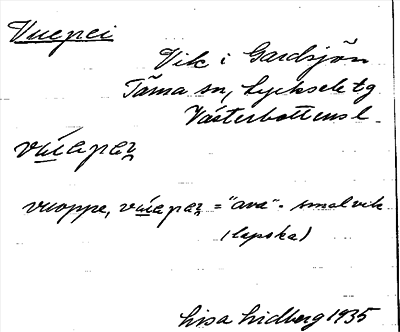 Vuepei
Vik i Gardsjön
Tärna sn, Lycksele tg
Västerbottens l.
vuoppe, = "ava" - smal vik
(lapska)
Lisa Lidberg 1935